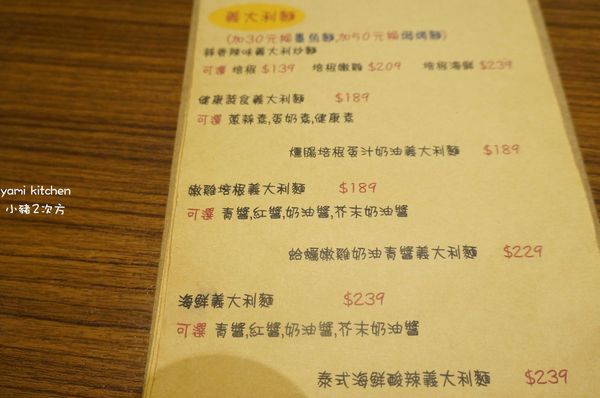 義大利麵
(加30元換墨魚麵,加50元換焗烤麵)
蒜香辣味義大利炒麵
可選 培根 $139 培根嫩雞 $209 培根海鮮 $239
健康蔬食義大利麵 $189
可選 蔥蒜素,蛋奶素,健康素
燻腸培根蛋汁奶油義大利麵 $189
嫩雞培根義大利麵 $189
可選 青醬,紅醬,奶油醬,芥末奶油醬
蛤蠣嫩雞奶油青醬義大利麵 $229
海鮮義大利麵 $239
可選 青醬,紅醬,奶油醬,芥末奶油醬
泰式海鮮酸辣義大利麵 $239
yami kitchen
小豬2次方